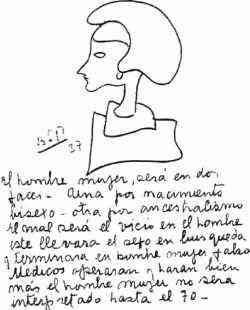 B.S.P.
37
El hombre mujer, será en dos
faces - Una por nacimiento
bisexo - otra por ancestralismo
el mal será el vicio en el hombre
este llevará el sexo en busqueda
y terminara en hombre mujer falso
Medicos operaran y harán bien
más el hombre mujer no sera
interpretado hasta el 70 -